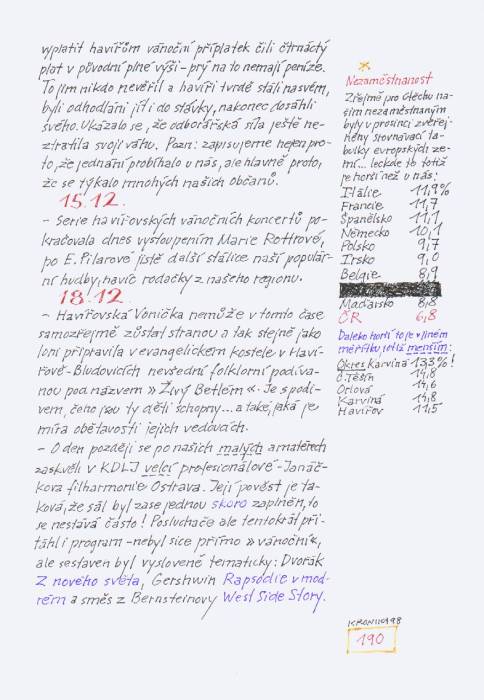 vyplatit havířům vánoční příplatek čili čtrnáctý
plat v původní plné výši – prý na to nemají peníze.
To jim nikdo nevěřil a havíři tvrdě stáli na svém,
byli odhodláni jít i do stávky, nakonec dosáhli
svého. Ukázalo se, že odborářská síla ještě ne-
ztratila svoji váhu. Pozn: zapisujeme nejen pro-
to, že jednání probíhalo u nás, ale hlavně proto,
že se týkalo mnohých našich občanů.
15.12.
– Serie havířovských vánočních koncertů po-
kračovala dnes vystoupením Marie Rottrové,
po E. Pilarové jistě další stálice naší populár-
ní hudby, navíc rodačky z našeho regionu.
18.12.
– Havířovská Vonička nemůže v tomto čase
samozřejmě zůstat stranou a tak stejně jako
loni připravila v evangelickém kostele v Haví-
řově-Bludovicích nevšední folklorní podíva-
nou pod názvem » Živý Betlém «. Je s podi-
vem, čeho jsou ty děti schopny... a také, jaká je
míra obětavosti jejich vedoucích.
– O den později se po našich malých amatérech
zaskvěli v KDLJ velcí profesionálové – Janáč-
kova filharmonie Ostrava. Její pověst je ta-
ková, že sál byl zase jednou skoro zaplněn, to
se nestává často! Posluchače ale tentokrát při-
táhl i program – nebyl sice přímo » vánoční «,
ale sestaven byl vysloveně tematicky: Dvořák
Z nového světa, Gershwin Rapsodie v mod-
rém a směs z Bernsteinovy West Side Story.
Nezaměstnanost
Zřejmě pro útěchu na-
šim nezaměstnaným
byly v prosinci zveřej-
něny srovnávací ta-
bulky evropských ze-
mí... leckde to totiž
je horší než u nás:
Itálie 11,9%
Francie 11,7
Španělsko 11,1
Německo 10,1
Polsko 9,7
Irsko 9,0
Belgie 8,9
Maďarsko 6,8
ČR 6,8
Daleko horší to je v jiném
měřítku, totiž menším:
Okres Karviná 13,3%!
Č. Těšín 14,8
Orlová 14,6
Karviná 14,8
Havířov 11,5
KRONIKA 98
190